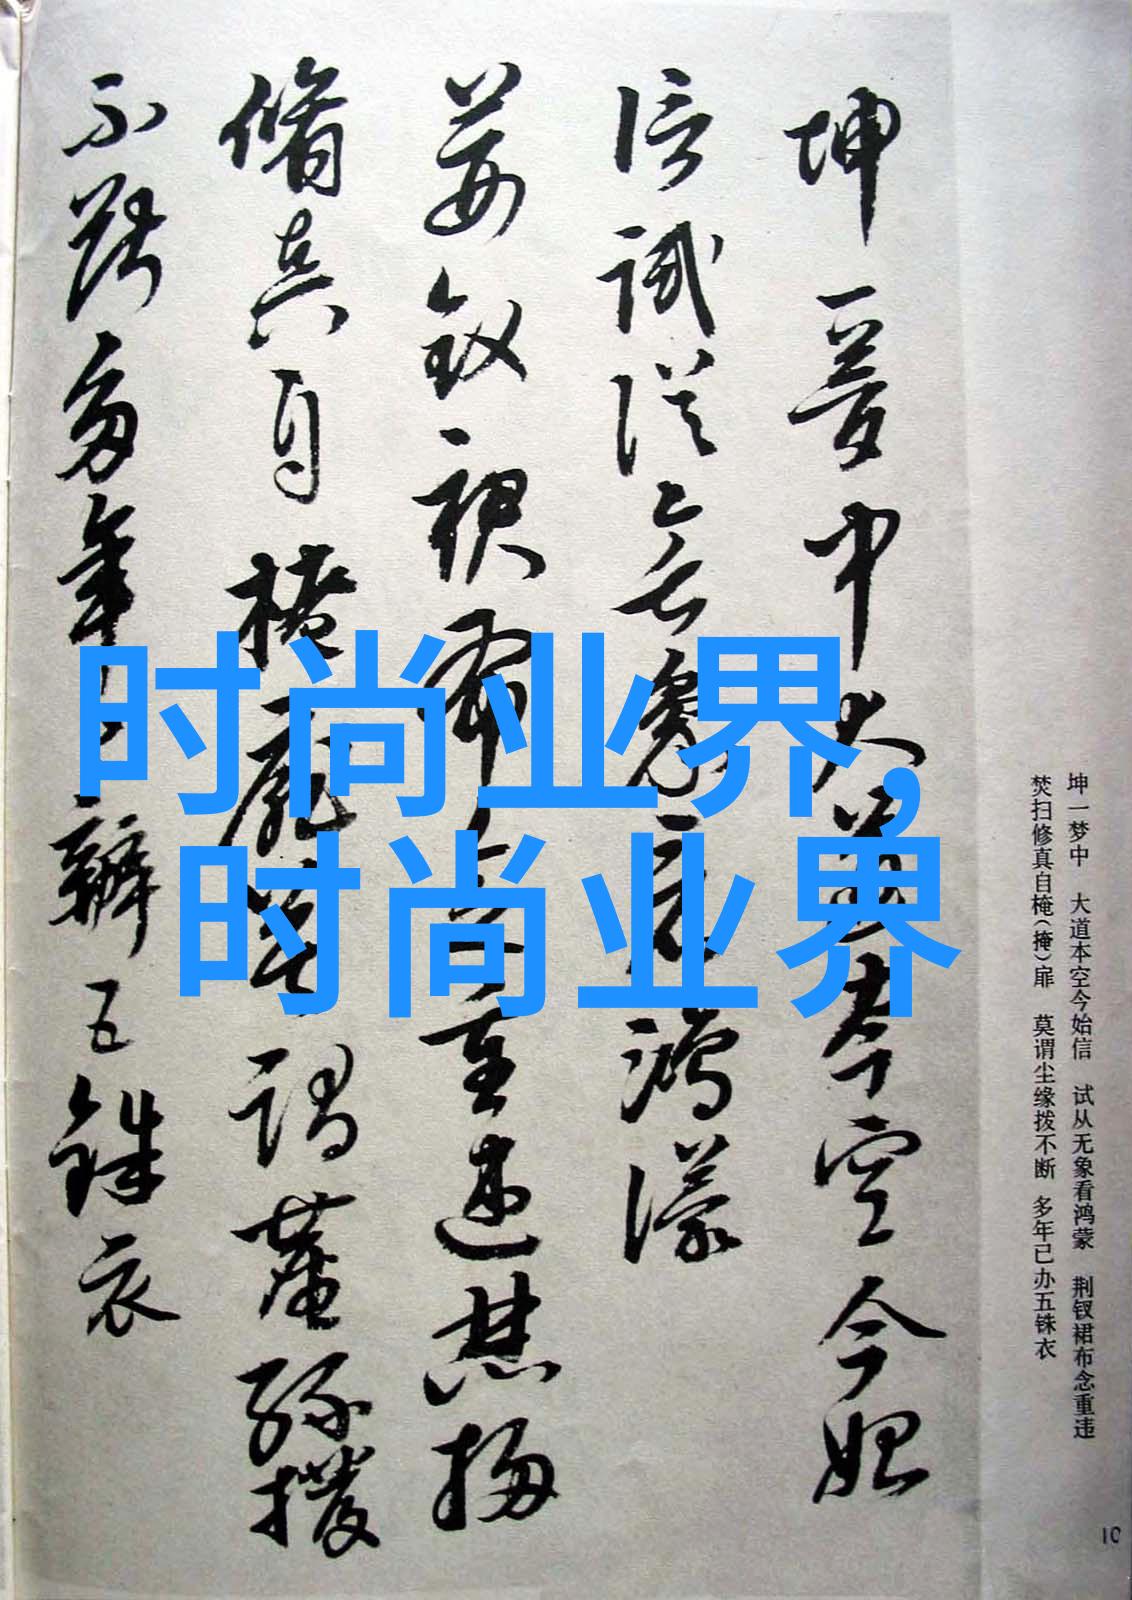 坤一夢中大道本空今始
信試從無象看鴻濛
荆釵裙布念重違焚掃
脩真自扉莫謂塵緣撥
不斷多年已辦五銖衣
坤一梦中　大道本空今始信　试从无象看鸿蒙　荆钗裙布念重违
焚扫修真自（掩）扉　莫谓尘缘拨不断　多年已办五铢衣
10
时尚业界,
时尚业界